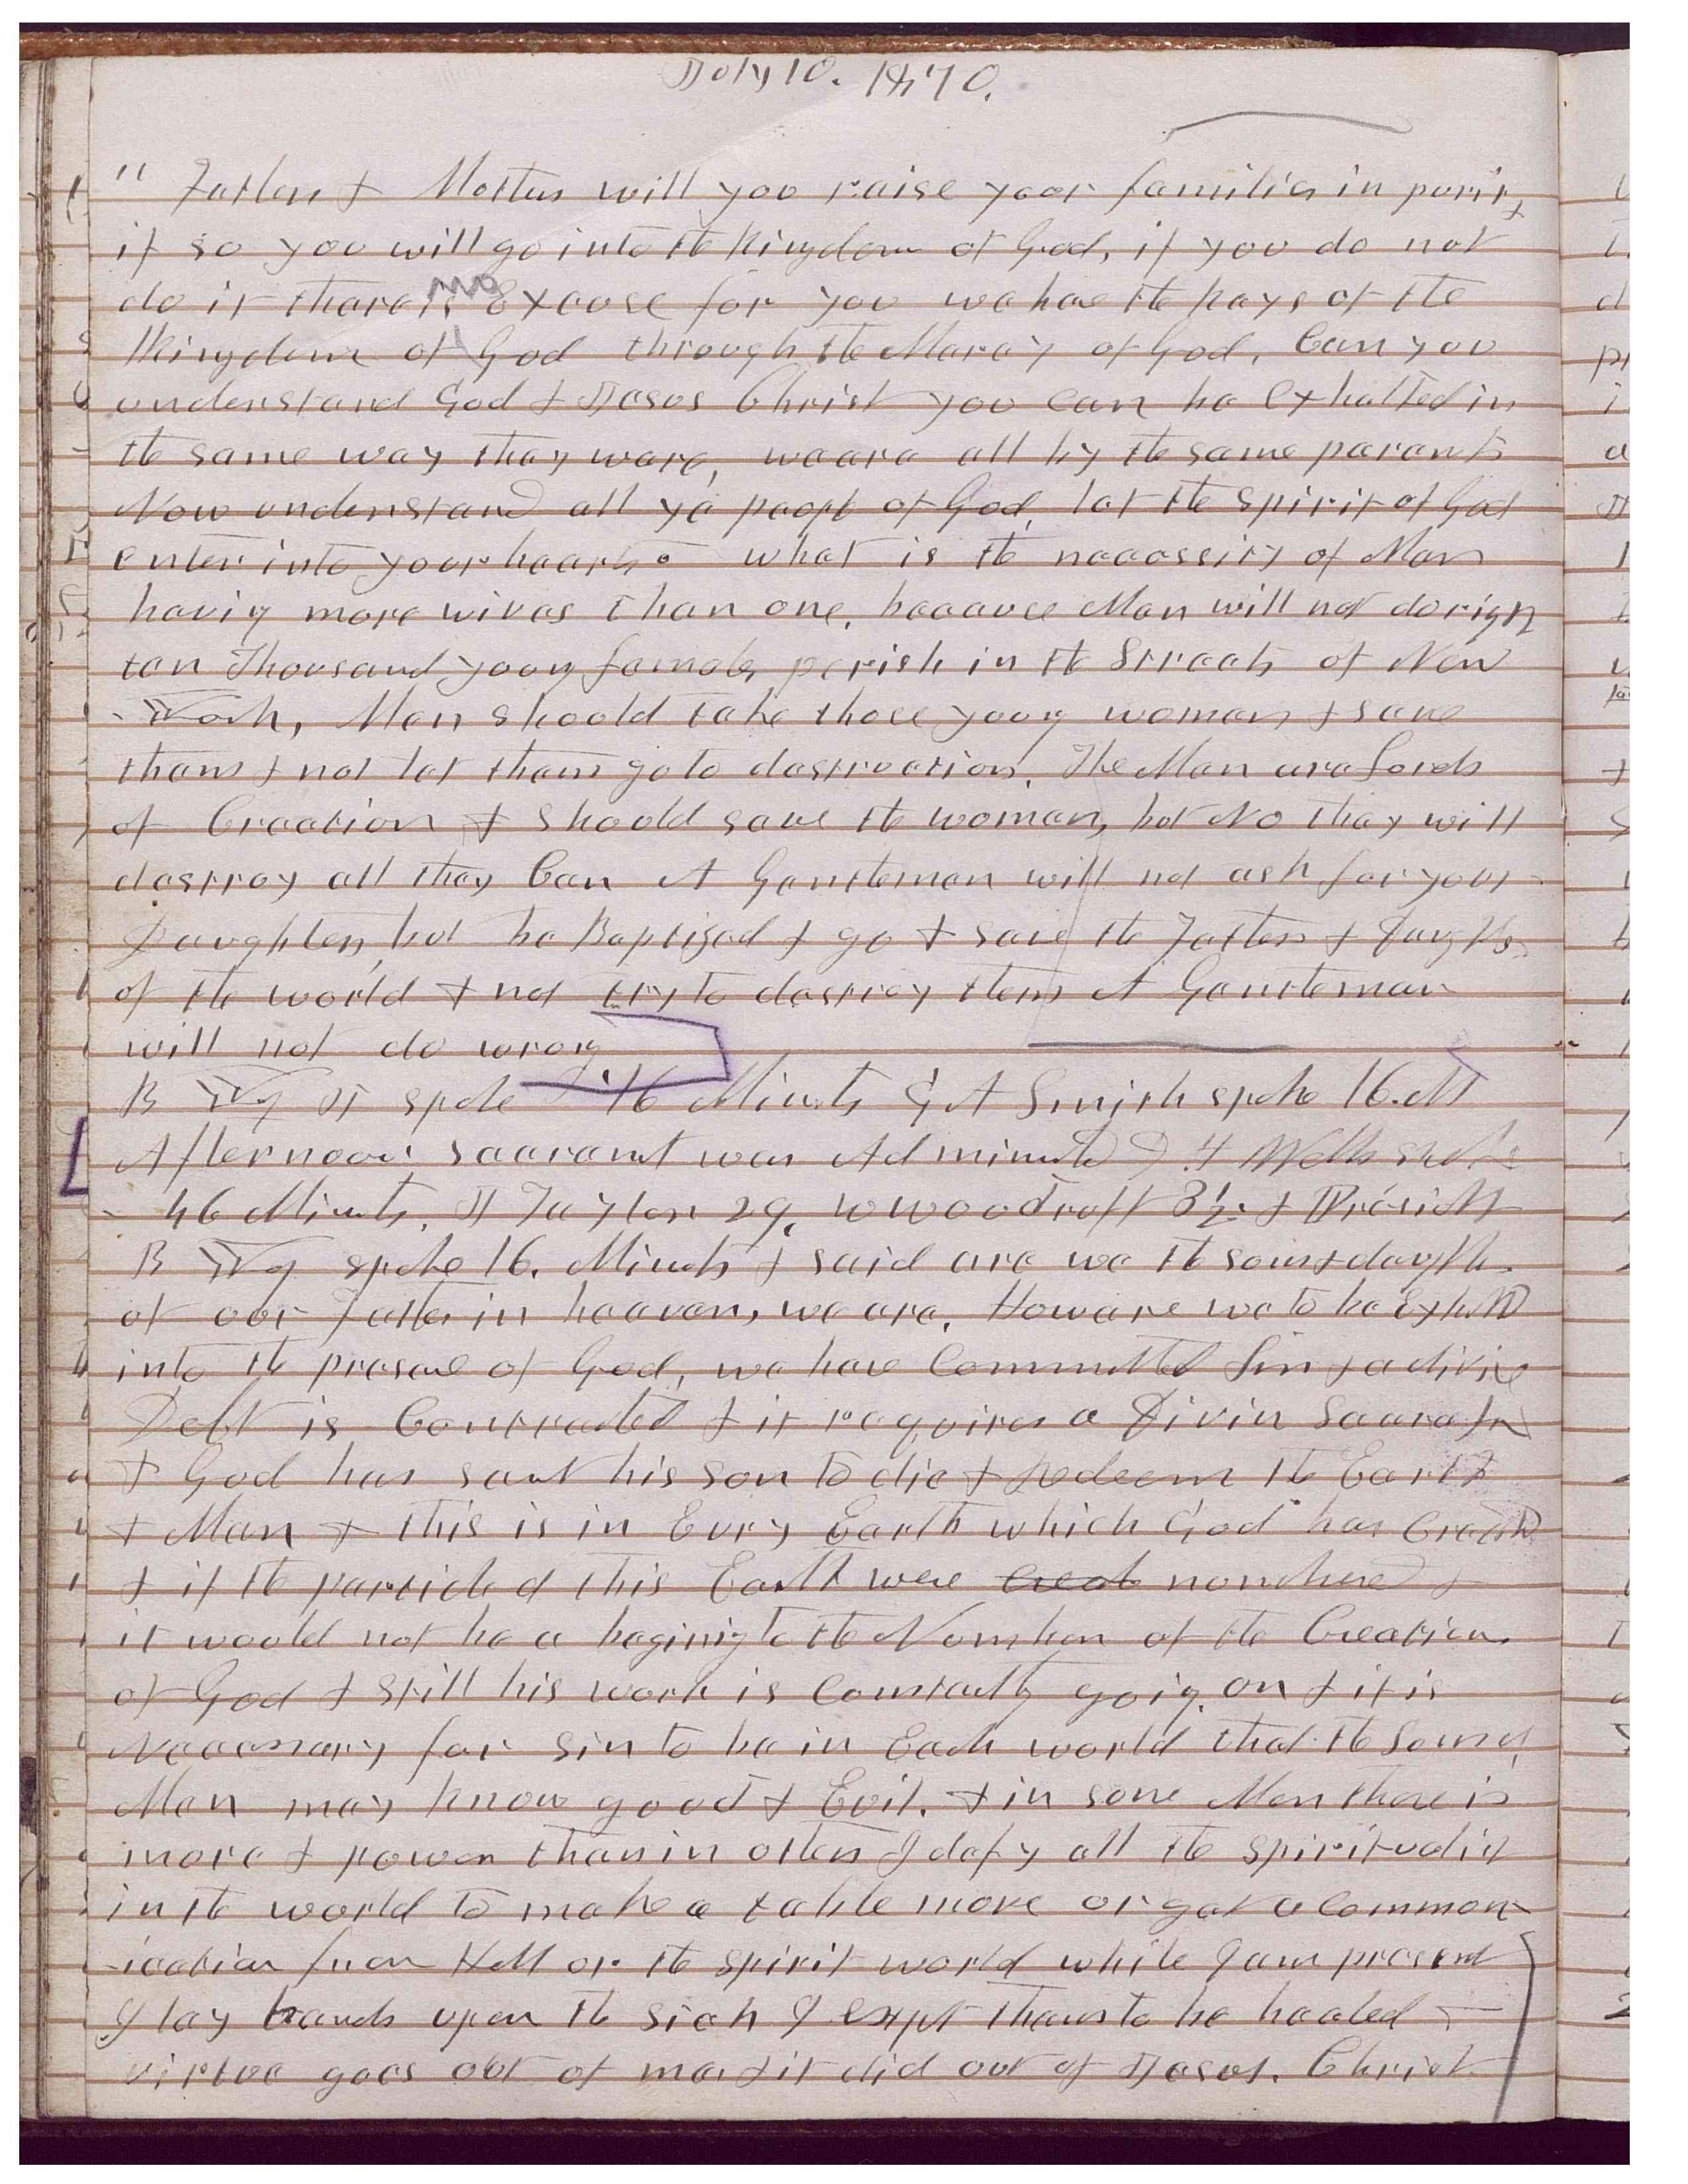 July 10. 1870.
" Fathers & Mothers will you raise your families in purity
if so you will go into the Kingdom of God, if you do not
do it there is no Excuse for you we have the keys of the
Kingdom of God through the Marcy of God. Can you
understand God & Jesus Christ you can be Exhalted in
the same way they ware, we are all by the same parents
Now understand all ye people of God, let the spirit of God
enter into your hearts. what is the necessity of Man
having more wives than one, because Men will not do right
ten Thousand young females perish in the Streets of New
- York, Men should take those young women & save
them & not let them go to destruction. The Men are Lords
of Creation & should save the women, but No they will
destroy all they Can A Gentleman will not ask for your
Daughters, but be Baptized & go & save the Fathers & Daughters
of the world & not try to destroy them A Gentleman
will not do wrong.
B Young Jr spoke 16 Minuts G A Smith spoke 16.M
Afternoon Sacrament was Administered D H Wells spoke
46 Minuts. J Taylor 29, W Woodruff 8½. & Presidt
B Young spoke 16. Minuts & said are we the sons & daughters
of our Father in heaven, we are. How are we to be Exhalted
into the presence of God, we have Committed Sin & a divine
Debt is Contracted & it requires a Divin Sacrafice
& God has sent his son to die & redeem the Earth
& Man & this is in Evry Earth which God has Created
& if the particles of this Earth were creat numbered &
it would not be a begining to the Number of the Creations
of God & still his work is Constantly going on & it is
Necessary for sin to be in Each world that the Sons of
Men may know good & Evil. & in some Men there is
more & power than in others I defy all the spiritualist
in the world to make a table move or get a Commun-
-ication from Hell or the spirit world while I am present
I lay hands upon the sick I expt them to be healed &
virtue goes out of me as it did out of Jesus. Christ